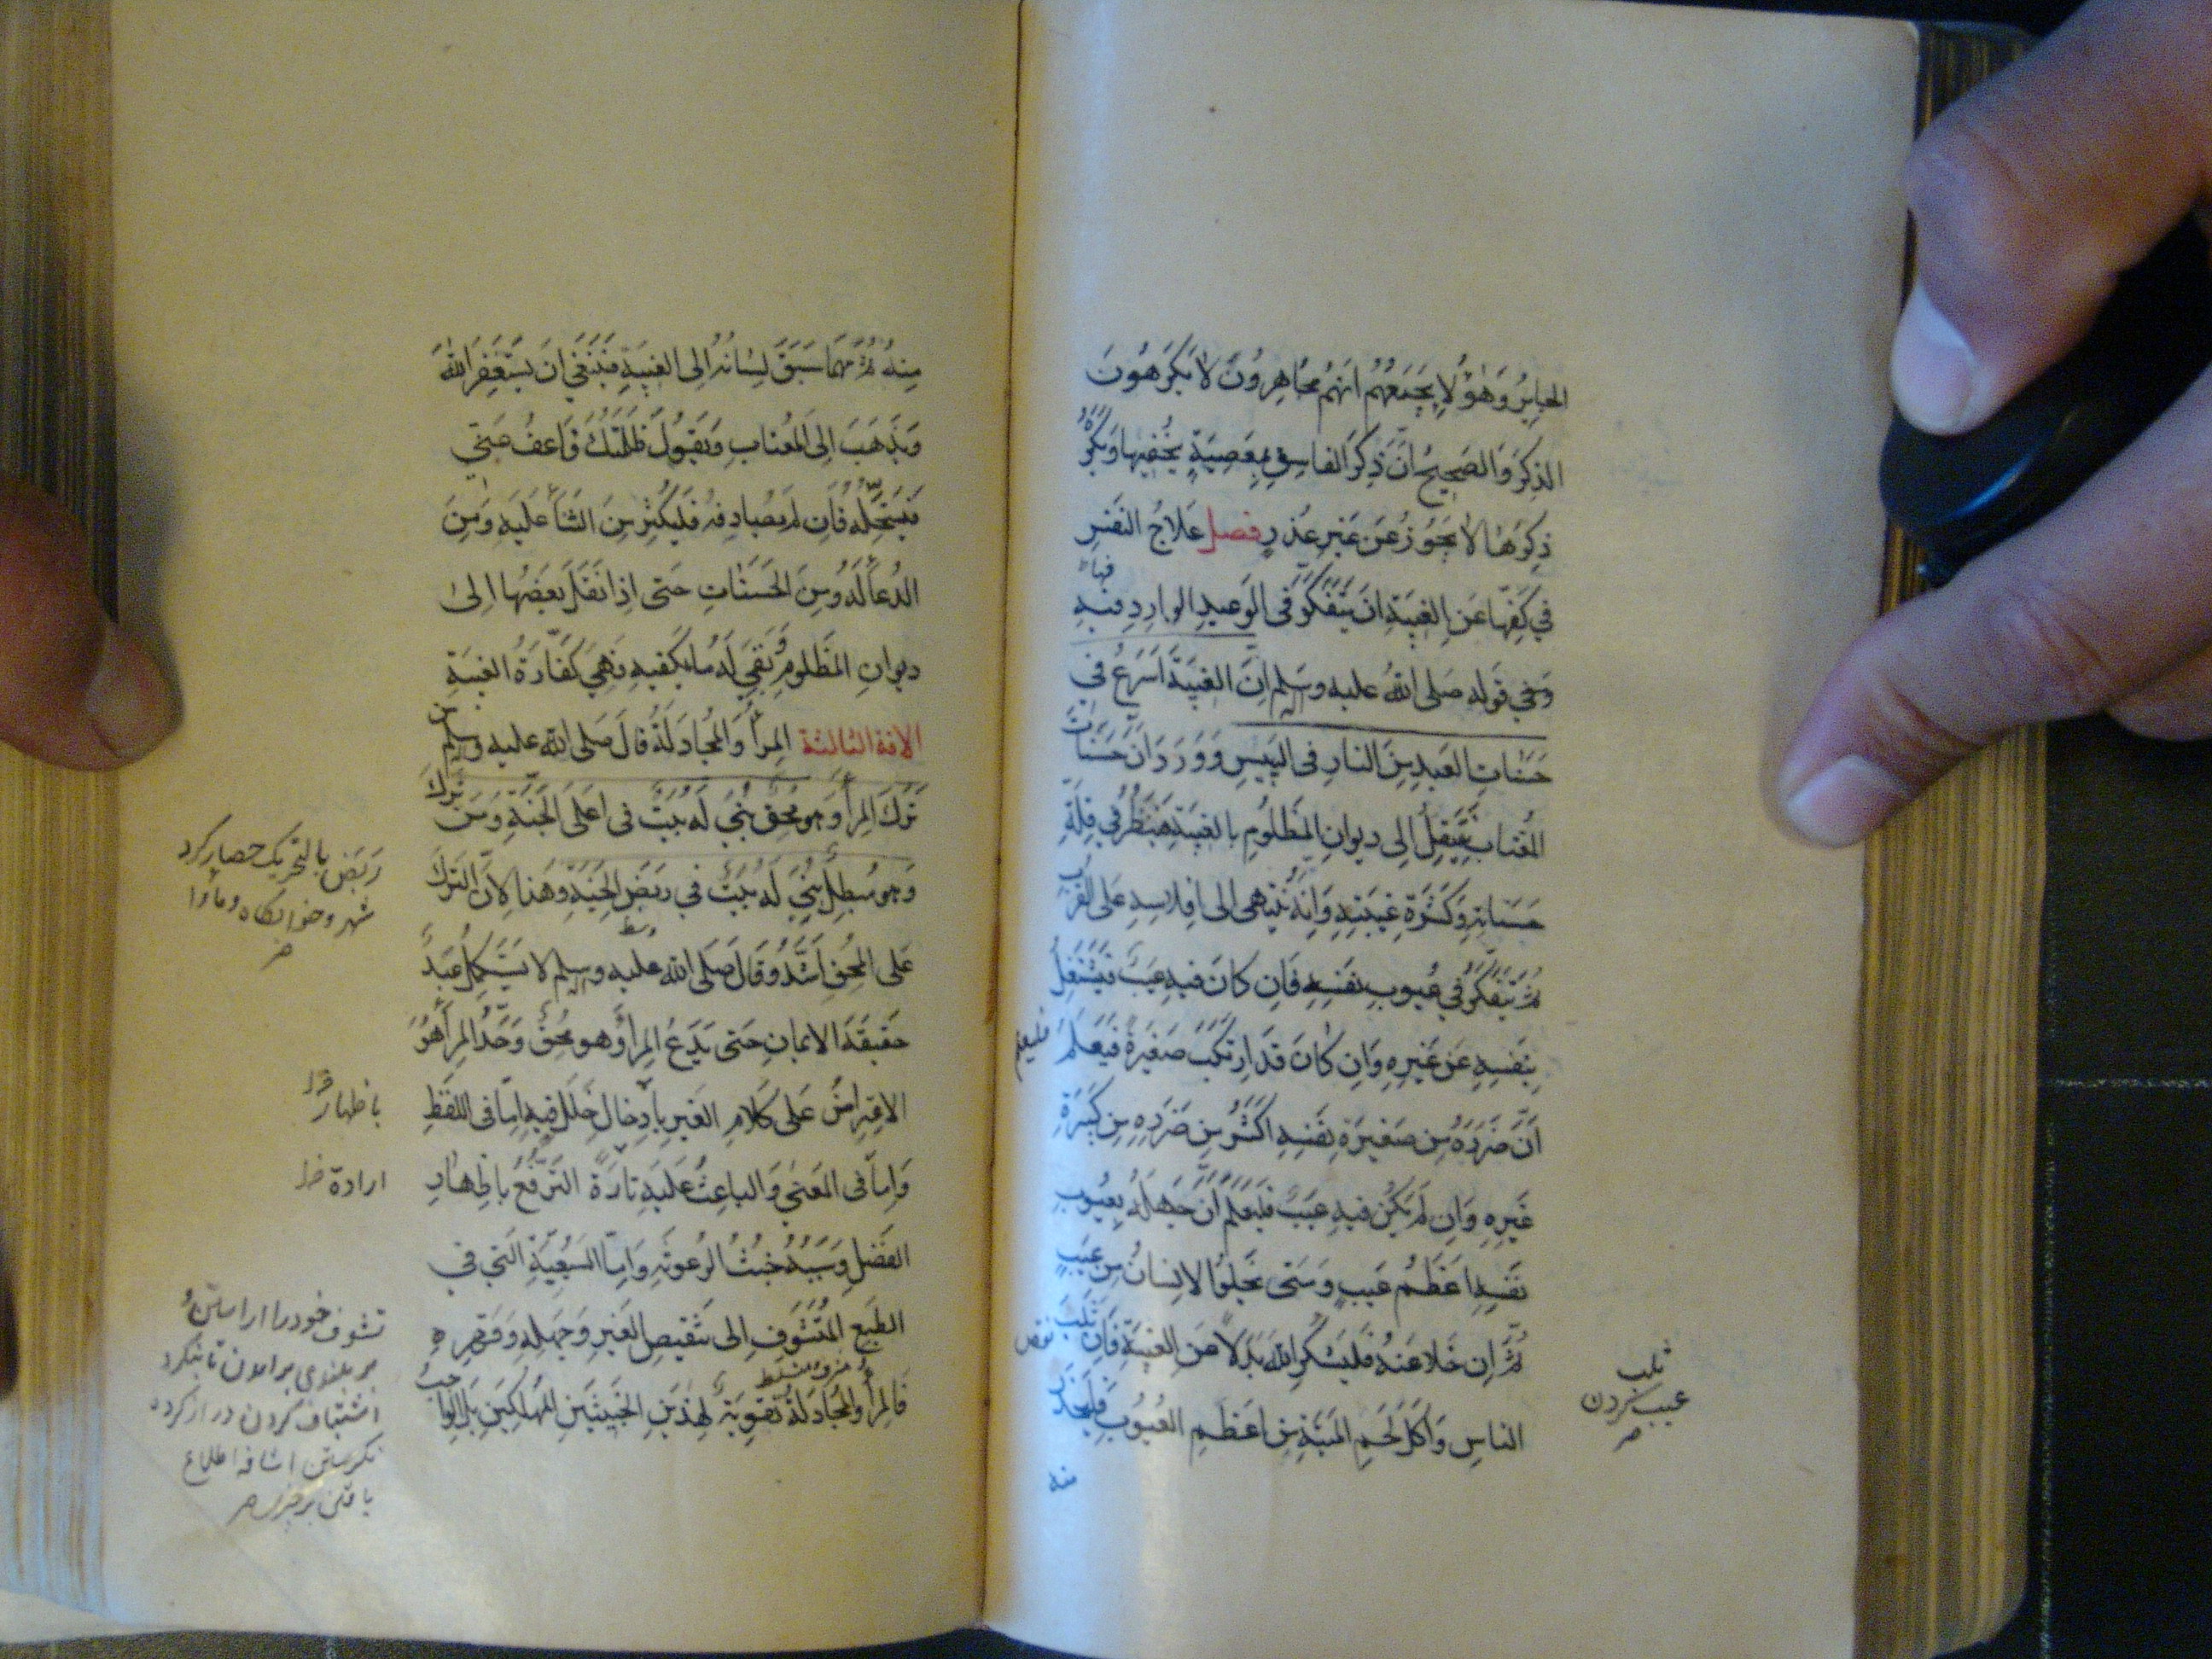 الجاير وهؤلا يجمعهم انهم مجاهرون لا يكرهون
الذكر والصحيح ان ذكر الفاسق بمعصية يخفيها ويكره
ذكرها لا يجوز عن غير عذر فصل علاج النفس
فيها
في كفها عن الغيبة ان يتفكر في الوعيد الوارد فيه
وفي قوله صلى الله عليه وآله وسلم ان الغيبة اسرع في
حسنات العبد من النار في اليبس وورد ان حسنات
المغتاب ينتقل الى ديوان المظلوم بالغيبة فينظر في قلة
حسناته وكثرة غيبته وانه ينتهى الى افلاسه على القرب
ثم يتفكر في عيوب نفسه فان كان فيه عيب فيشتغل
بنفسه عن غيره وان كان قد ارتكب صغيرة فيعلم
فليعلم
ان ضرره من صغيرة نفسه اكثر من ضرره من كبيرة
غيره وان لم يكن فيه عيب فليعلم ان جهله بعيوب
نفسه اعظم عيب ومتى يخلوا الانسان من عيب
ثم ان خلا عنه فليشكر الله بدلا عن الغيبة فان ثلب
الناس واكل لحم الميتة من اعظم العيوب فليحذر
منه
ثلب
عيب كردن
منه ثم مهما سبق لسانه الى الغيبة فينبغي ان يستغفر الله
ويذهب الى المغتاب ويقول ظلمتك فاعف عني
فيستحله فان لم يصادفه فليكثر من الثنأ عليه ومن
الدعأ له ومن الحسنات حتى اذا نقل بعضها الى
ديوان المظلوم يبقي له ما يكفيه فهي كفارة الغيبة
الافة الثالثة المرأ والمجادلة قال صلى الله عليه وسلم من
ترك المرأ وهو محق بني له بيت في اعلى الجنة ومن ترك
وهو مبطل بني له بيت في ربض الجنة وهذا لان الترك
وسط
على المحق اشد وقال صلى الله عليه وآله وسلم لا يستكمل عبد
حقيقة الايمان حتى يدع المرأ وهو محق وحد المرأ هو
الاعتراض على كلام الغير بادخال خلل فيه اما في اللفظ
واما في المعنى والباعث عليه تارة الترفع باظهار
الفضل وسببه خبث الرعونة واما السبعية التي في
الطبع المتشوف الى تنقيص الغير وجهله وقهره
فالمرأ والمجادلة تقوية لهذين الخبيثين المهلكين بل الواجب
ربض بالتحريك حصار كرد
شهر وخوابكاه وماوا
باظهار
ارادة
تشوف خود را اراستن و
بر بلندى برامدن تا بنكرد